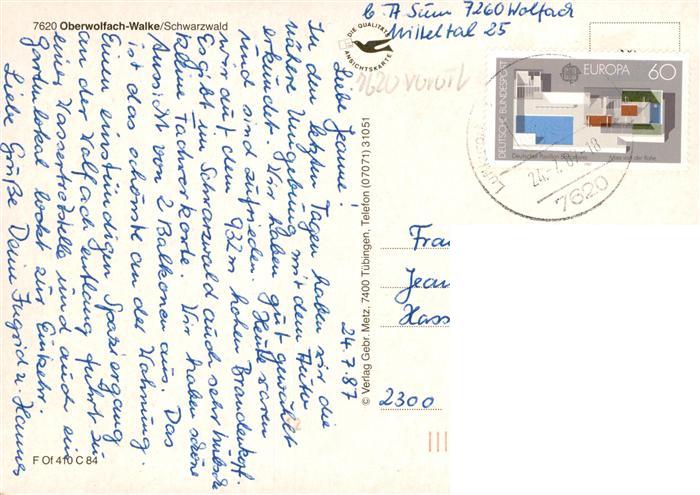 7620 Oberwolfach-Walke/Schwarzwald
24.7.87
Liebe Jeanne!
In den letzten Tagen haben wir die
nähere Umgebung mit dem Auto
erkundet. Wir haben gut gewählt
und sind zufrieden. Heute waren
wir auf dem 932 m hohen Brandenkopf.
Es gibt im Schwarzwald auch sehr hübsche
kleine Fachwerkorte. Wir haben schöne
Aussicht von 2 Balkonen aus. Das
ist das schönste an der Wohnung.
Einen einstündigen Spaziergang
an der Wolfach entlang führt zu
einer Wassertretstelle und auch ein
Gartenlokal lockt zur Einkehr.
Liebe Grüße Deine Ingrid u. Hannes
F Of 410 C 84
DIE QUALITÄTS
ANSICHTSKARTE
© Verlag Gebr. Metz, 7400 Tübingen, Telefon (07071) 31051
b. A Sum 7260 Wolfach
Mitteltal 25
DEUTSCHE BUNDESPOST
EUROPA 60
Deutscher Pavillon Barcelona Mies van der Rohe
24.-7.87-18
7620
Frau
Jean
Hass
2300